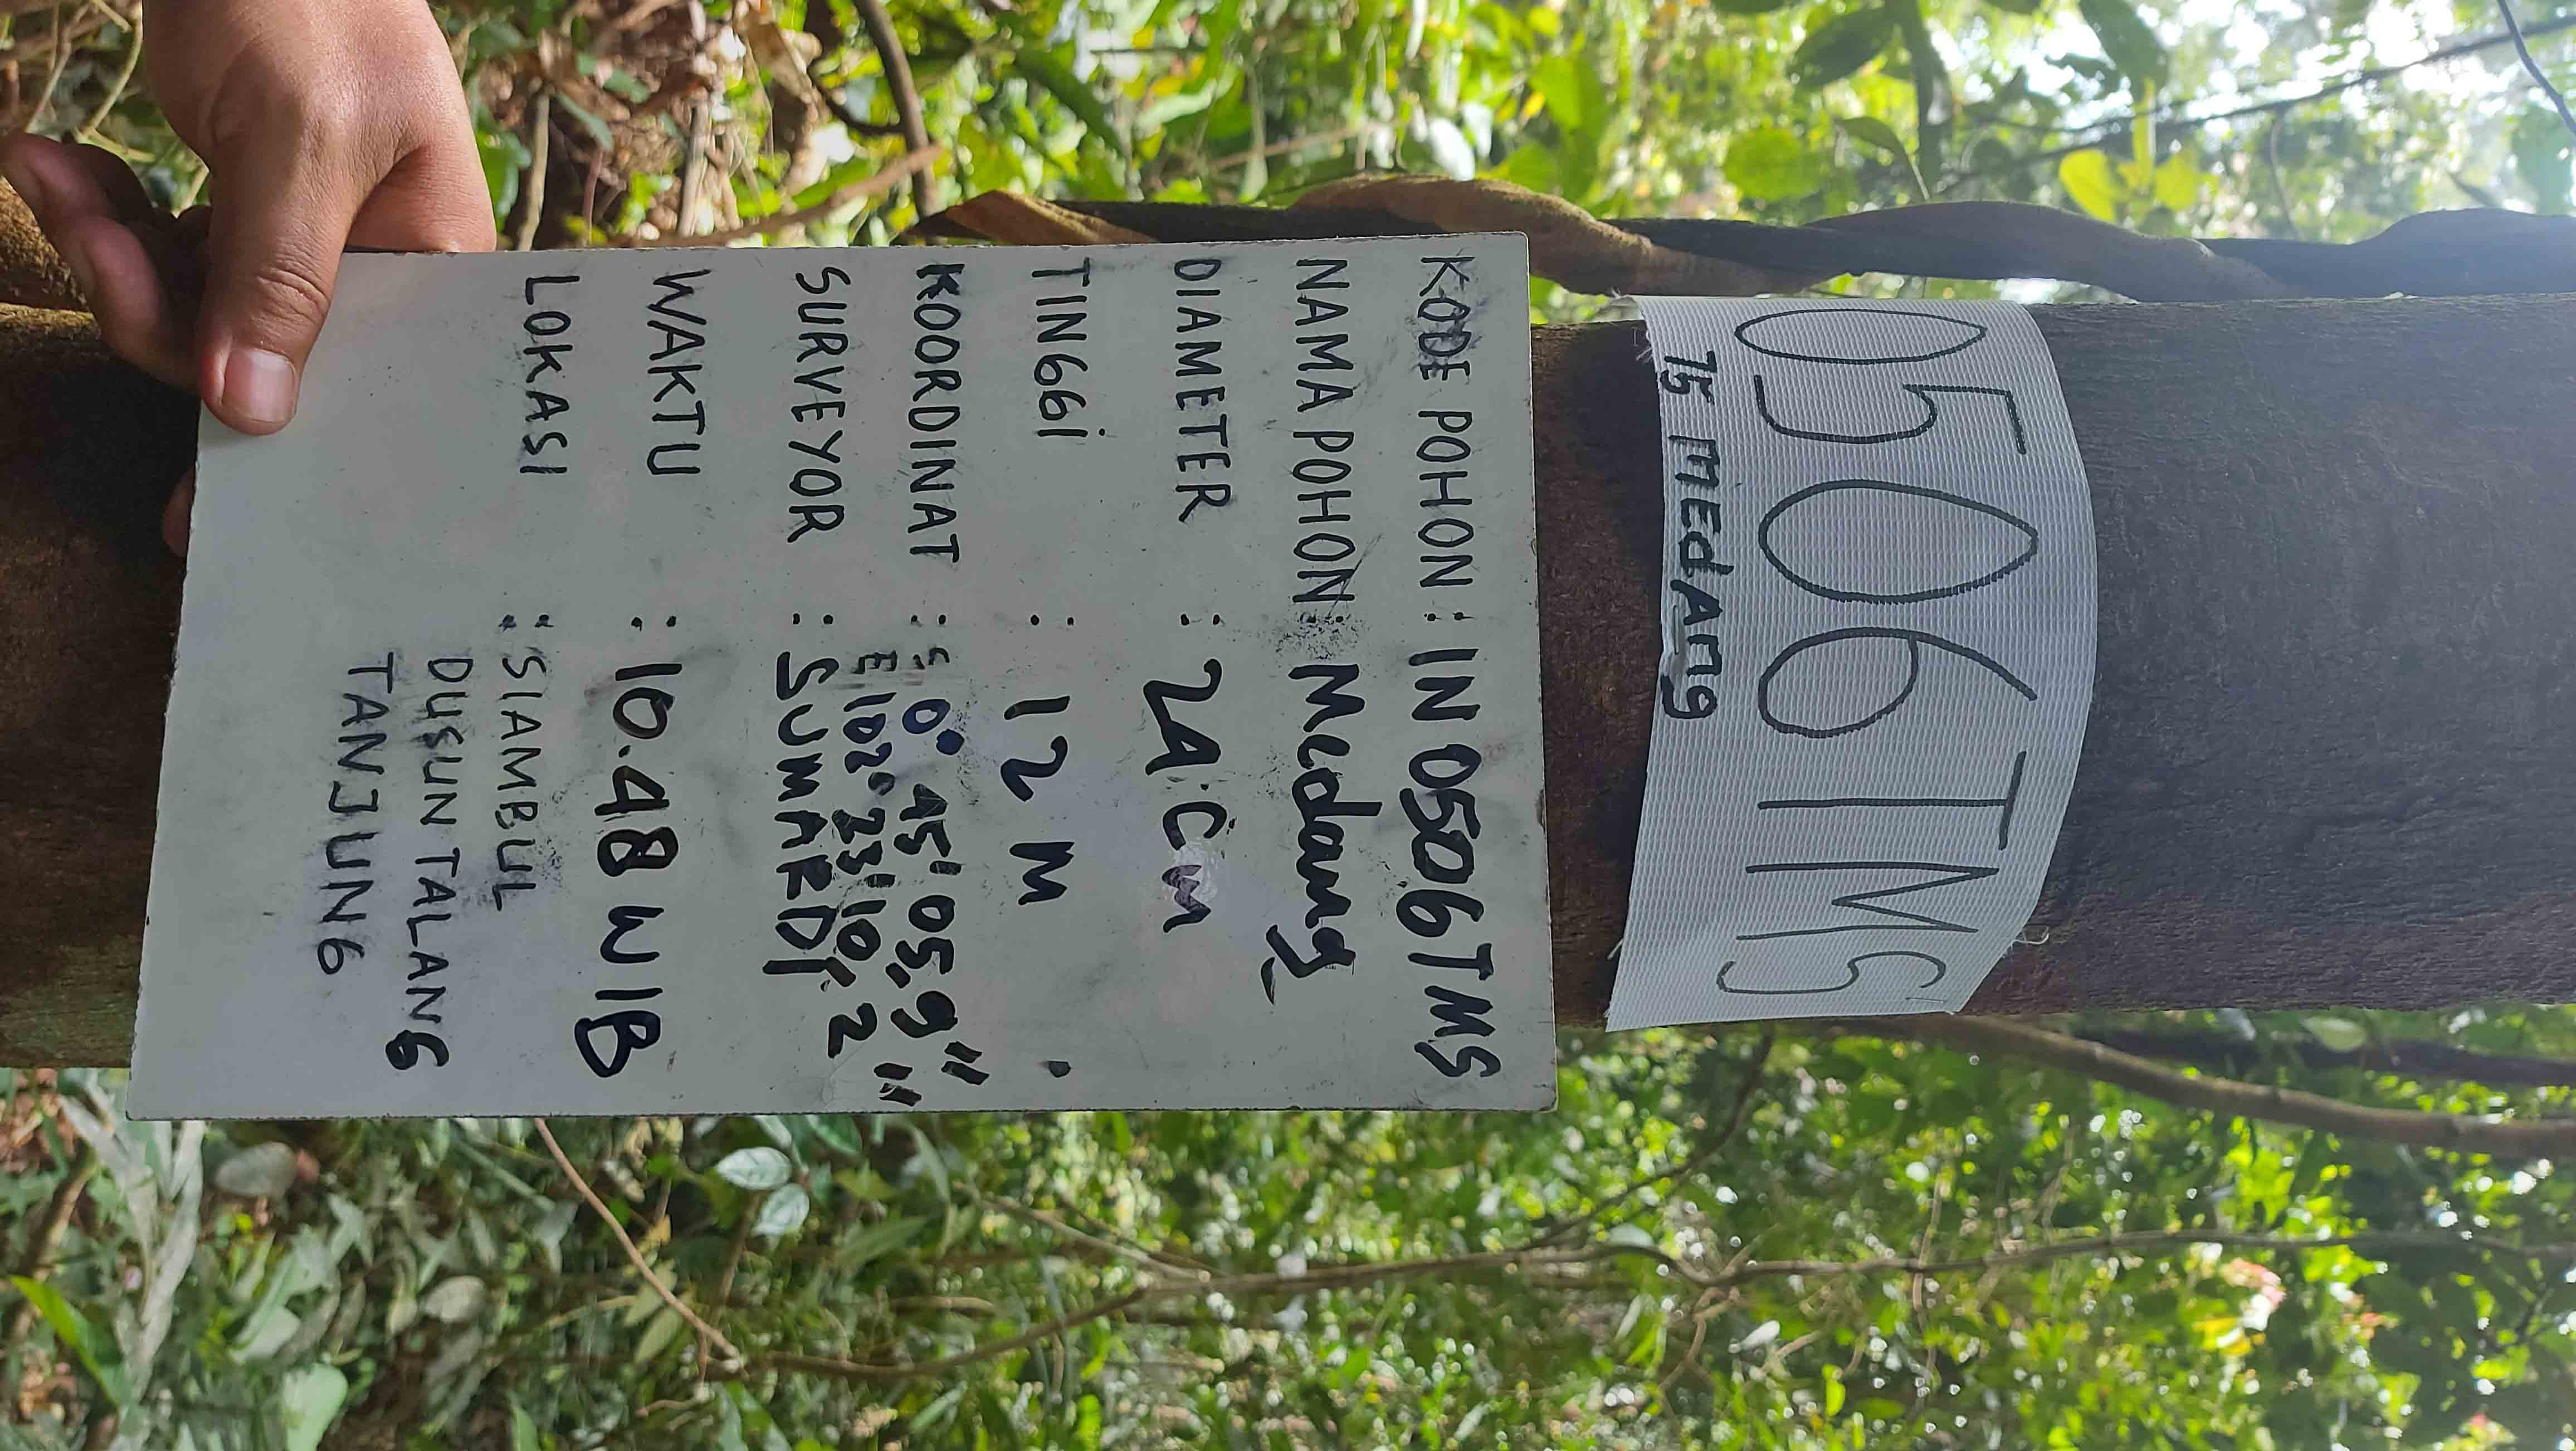 0506TMS
75 MEdAng
KODE POHON : IN 0506TMS
NAMA POHON : Medang
DIAMETER : 24.Cm
TINGGi : 12 M
KOORDINAT : S 0° 45' 05,9"
E 102° 23' 10,2"
SURVEYOR : SUMARDI
WAKTU : 10.48 WIB
LOKASI : SIAMBUL
DUSUN TALANG
TANJUNG